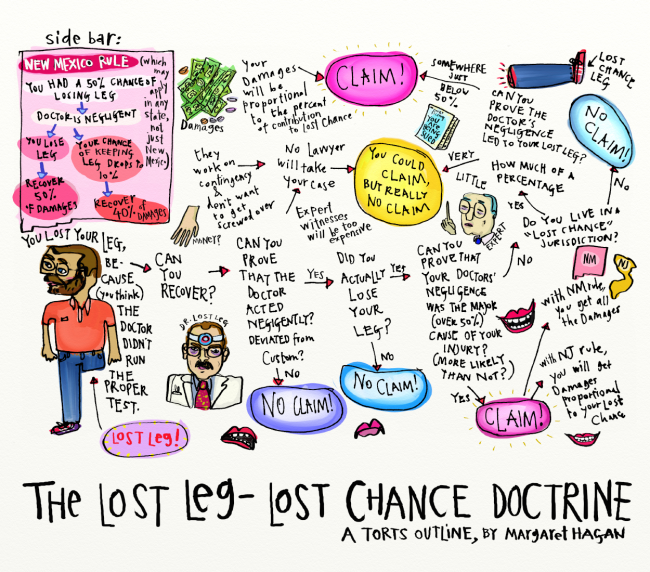 side bar:
NEW MEXICO RULE
(which
may
apply
in any
state,
not
just
New
Mexico)
YOU HAD A 50% CHANCE OF
LOSING LEG
DOCTOR is NEGLIGENT
YOU LOSE
LEG
RECOVER
50%
OF DAMAGES
YOUR CHANCE
OF KEEPING
LEG DROPS to
10%
RECOVER
40% of DAMAGES
Damages
Your
Damages
will be
proportional
to the percent
of contribution
to Lost Chance
CLAIM!
SOMEWHERE
JUST
BELOW
50%
LOST
CHANCE
LEG
CAN YOU
PROVE THE
DOCTOR'S
NEGLIGENCE
LED TO YOUR LOST LEG?
NO
CLAIM!
They
work on
contingency
& don't
want to
get
screwed over
MONEY?
No Lawyer
will take
Your case
Expert
witnesses
will be too
expensive
YOU COULD
CLAIM,
BUT REALLY
NO CLAIM
YOU ARE
BEING
SUED
VERY
LITTLE
HOW MUCH OF A
PERCENTAGE
EXPERT
YES
No
DO YOU LIVE IN A
"LOST CHANCE"
JURISDICTION?
NO
YOU LOST YOUR LEG,
BE-
CAUSE
(you think)
THE
DOCTOR
DIDN'T
RUN
THE
PROPER
TEST.
LOST Leg!
CAN
YOU
RECOVER?
DR. LOST LEG
CAN YOU
PROVE
THAT THE
DOCTOR
ACTED
NEGIGENTLY?
DEVIATED from
Custom?
NO
NO CLAIM!
YES
DID YOU
ACTUALLY
LOSE
YOUR
LEG?
NO
NO CLAIM!
Yes
CAN YOU
PROVE THAT
YOUR DOCTORS'
NEGLIGENCE
WAS THE MAJOR
(OVER 50%)
CAUSE OF YOUR
INJURY?
(MORE LIKELY
THAN NOT?)
YES
CLAIM!
NM
NJ
with NM rule,
You get all
the Damages
with NJ rule,
you will get
Damages
proportional
to your Lost
Chance
THE LOST Leg - LOST CHANCE DOCTRINE
A TORTS OUTLINE, BY MARgAReT HAGAN